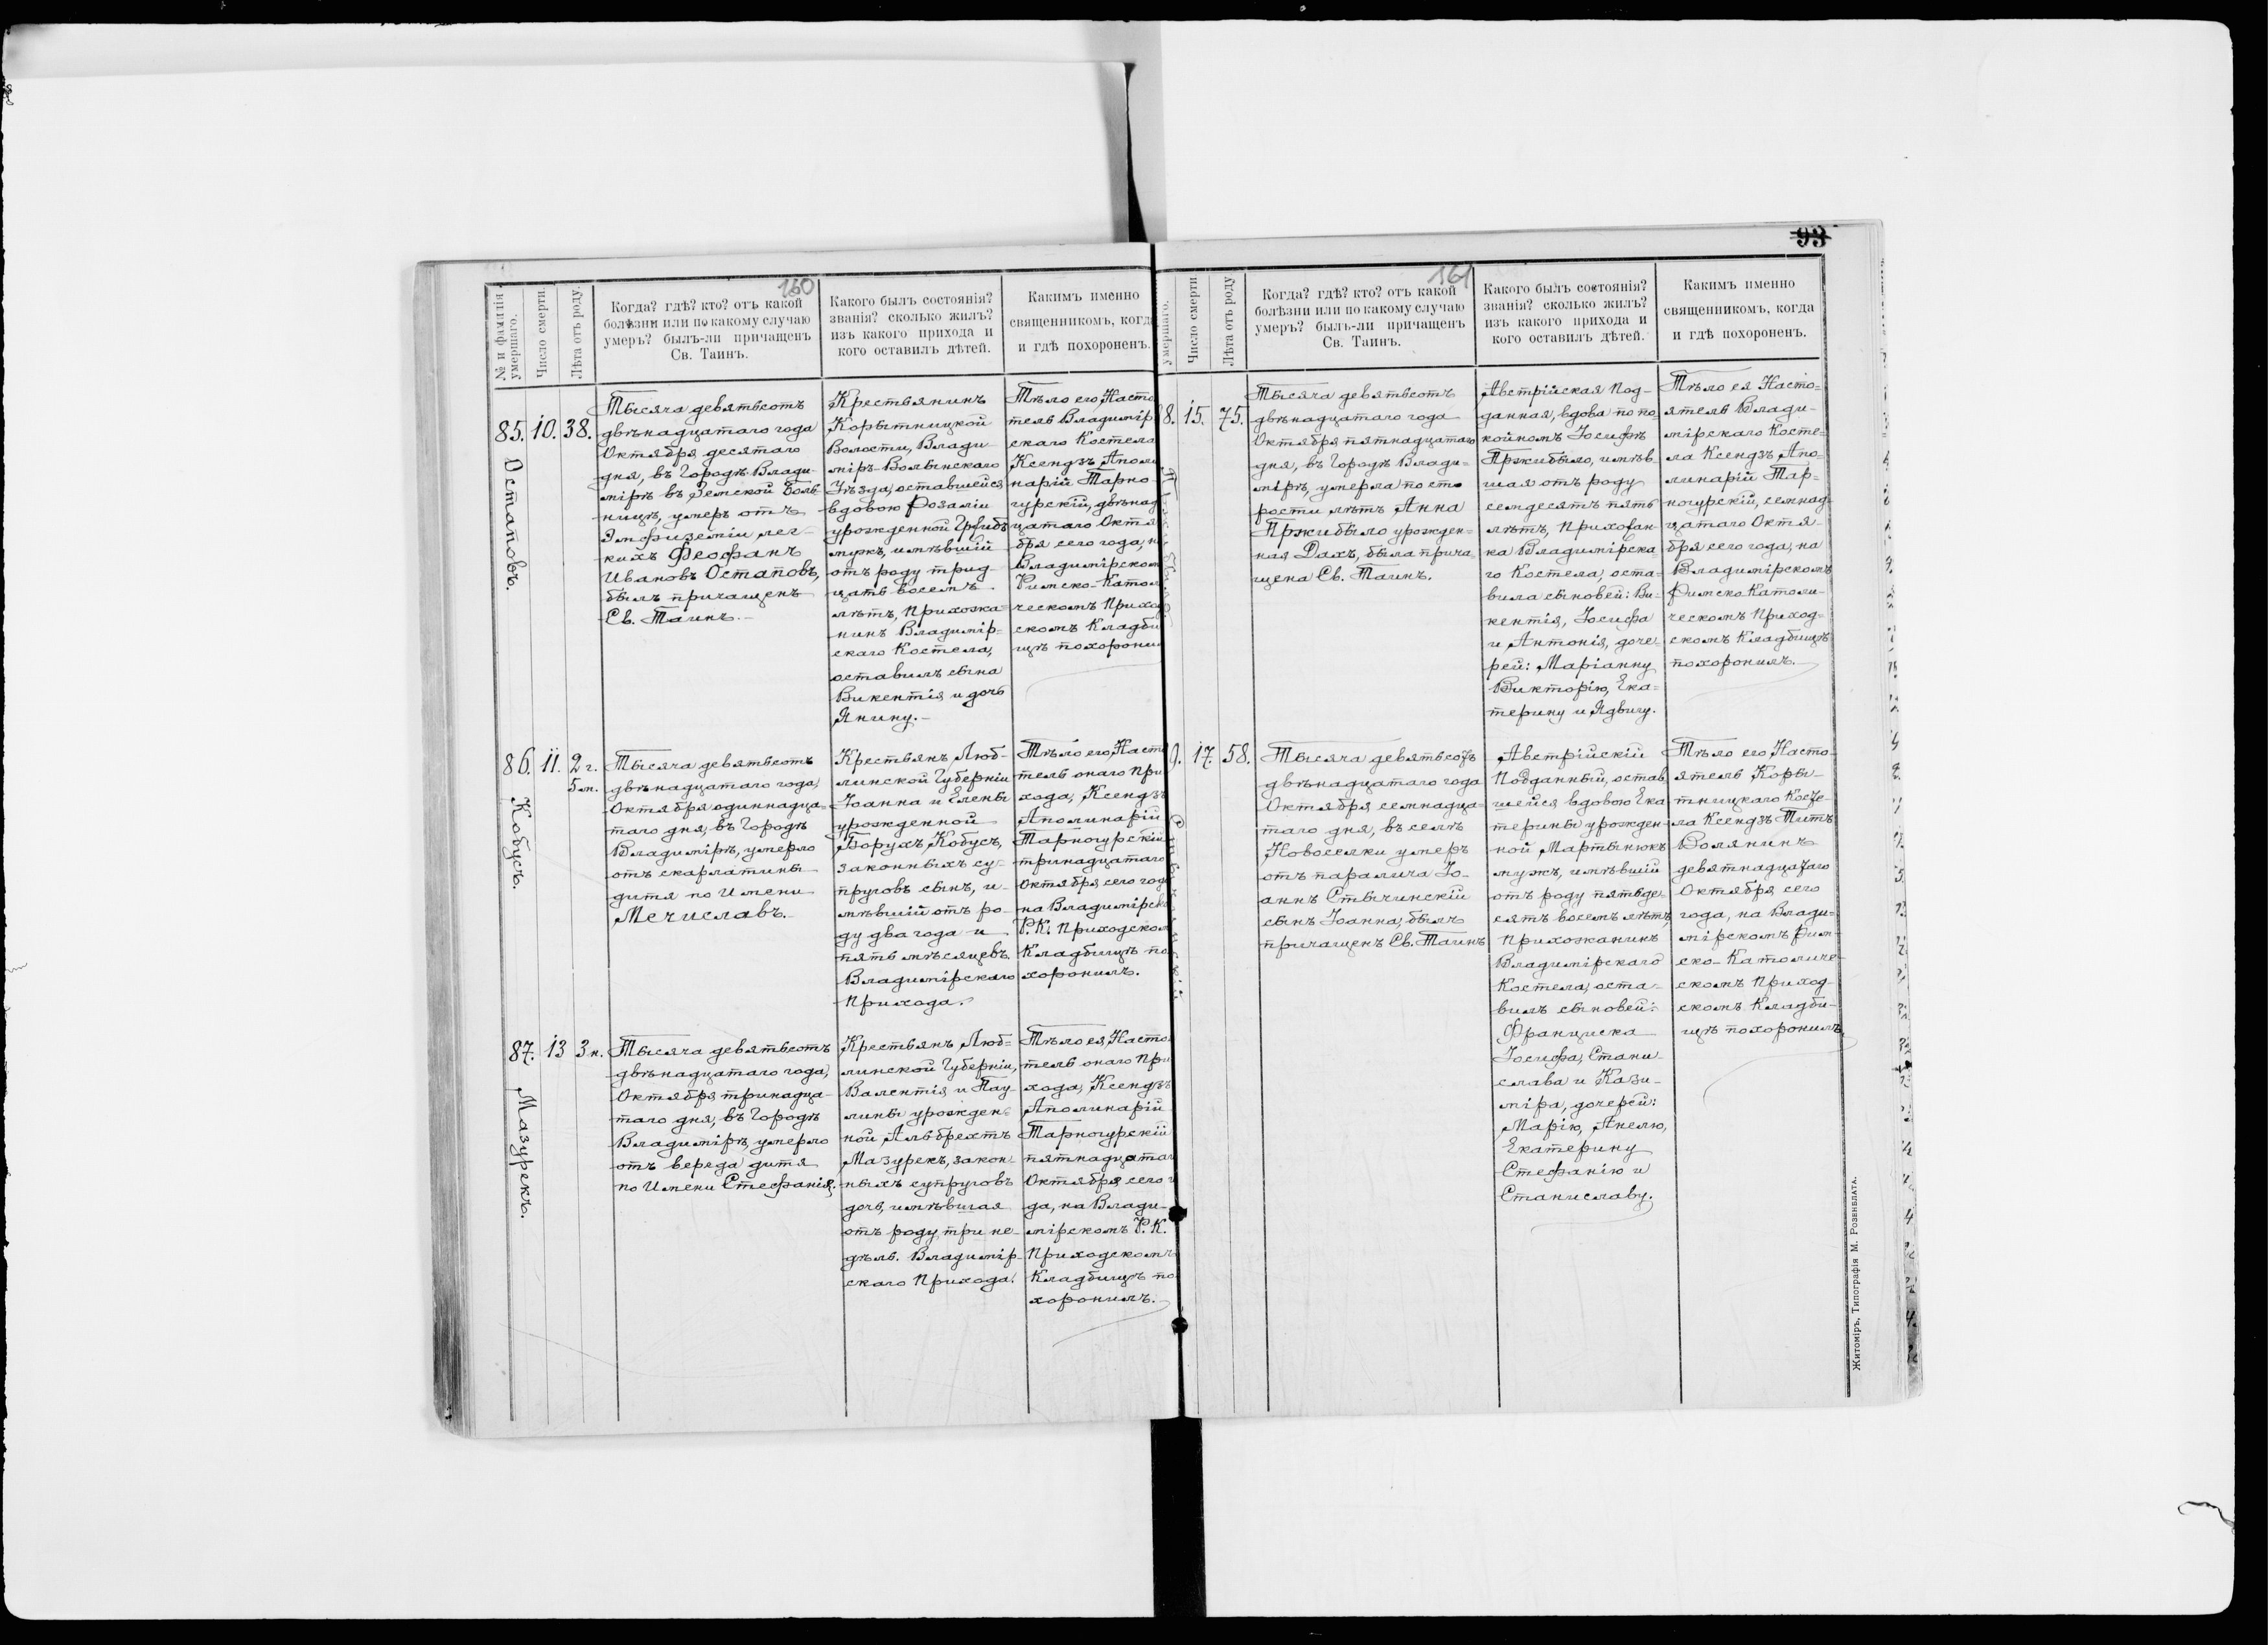 160
№ и фамилія умершаго.
Число смерти.
Лѣта отъ роду.
Когда? гдѣ? кто? отъ какой
болѣзни или по какому случаю
умеръ? былъ-ли причащенъ
Св. Таинъ.
Какого былъ состоянія?
званія? сколько жилъ?
изъ какого прихода и
кого оставилъ дѣтей.
Какимъ именно
священникомъ, когда
и гдѣ похороненъ.
85.
Остаповъ.
10.
38.
Тысяча девятьсотъ
двѣнадцатаго года
Октября десятаго
дня, въ Городѣ Влади-
мірѣ въ Земской Боль-
ницѣ, умеръ отъ
Эмфиземіи лег-
кихъ Феофанъ
Ивановъ Остаповъ,
былъ причащенъ
Св. Таинъ.
Крестьянинъ
Корытницкой
Волости, Влади-
міръ-Волынскаго
Уѣзда, оставшейся
вдовою Розаліи
урожденной Грибъ
мужъ, имѣвшій
отъ роду трид-
цать восемъ
лѣтъ, Прихожа-
нинъ Владимір-
скаго Костела,
оставилъ сына
Викентія и дочь
Янину.
Тѣло его, Насто
тель Владимір
скаго Костела
Ксендзъ Аполи
нарій Тарно-
гурскій, двѣнад
цатаго Октя
бря сего года, н
Владимірском
Римско-Катол
ческомъ Приход
скомъ Кладби
щѣ похорони
86.
Кобусъ.
11.
2 г.
5 м.
Тысяча девятьсотъ
двѣнадцатаго года,
Октября одиннадца-
таго дня, въ Городѣ
Владимірѣ, умерло
отъ скарлатины
дитя по Имени
Мечиславъ.
Крестьянъ Люб-
линской Губерніи
Іоанна и Елены
урожденной
Борухъ, Кобусъ,
законныхъ су-
пруговъ сынъ, и-
мѣвшій отъ ро-
ду два года и
пять мѣсяцевъ.
Владимірскаго
Прихода.
Тѣло его, Насто
тель онаго При
хода, Ксендзъ
Аполинарій
Тарногурскій
тринадцатаго
Октября, сего года
на Владимірско
Р. К. Приходском
Кладбищѣ по
хоронилъ.
87.
Мазурекъ.
13
3 н.
Тысяча девятьсотъ
двѣнадцатаго года,
Октября тринадца-
таго дня, въ Городѣ
Владимірѣ, умерло
отъ вереда дитя
по Имени Стефанія.
Крестьянъ Люб-
линской Губерніи,
Валентія и Пау-
лины урожден-
ной Альбрехтъ
Мазурекъ, закон-
ныхъ супруговъ
дочь, имѣвшая
отъ роду три не-
дѣль. Владимір-
скаго Прихода.
Тѣло ея, Насто
тель онаго При
хода, Ксендзъ
Аполинарій
Тарногурскій
пятнадцатаг
Октября, сего г
да, на Влади-
мірскомъ Р. К.
Приходскомъ
Кладбищѣ по
хоронилъ.
161
93
умершаго.
Число смерти
Лѣта отъ роду
Когда? гдѣ? кто? отъ какой
болѣзни или по какому случаю
умеръ? былъ-ли причащенъ
Св. Таинъ.
Какого былъ состоянія?
званія? сколько жилъ?
изъ какого прихода и
кого оставилъ дѣтей.
Какимъ именно
священникомъ, когда
и гдѣ похороненъ.
8.
15.
75.
Тысяча девятьсотъ
двѣнадцатаго года
Октября пятнадцатаго
дня, въ Городѣ Влади=
мірѣ, умерла по ста
рости лѣтъ Анна
Пржибыло урожден=
ная Дахъ, была прича
щена Св. Таинъ.
Австрійская Под-
данная, вдова по по
койномъ Іосифѣ
Пржибыло, имѣв-
шая отъ роду
семдесятъ пять
лѣтъ, Прихожан-
ка Владимірска
го Костела, оста-
вила сыновей: Ви-
кентія, Іосифа
и Антонія, доче-
рей: Маріанну
Викторію, Ека=
терину и Ядвигу.
Тѣло ея Насто=
ятель Влади-
мірскаго Косте=
ла Ксендзъ Апо=
линарій Тар=
ногурскій, семнад
цатаго Октя-
бря сего года, на
Владимірскомъ
Римско Католи-
ческомъ Приход=
скомъ Кладбищѣ
похоронилъ.
9.
17.
58.
Тысяча девятьсотъ
двѣнадцатаго года
Октября семнадца=
таго дня, въ селѣ
Новоселки умеръ
отъ паралича Іо-
аннъ Стычинскій
сынъ Іоанна, былъ
причащенъ Св. Таинъ
Австрійскій
Подданный, остав
шейся вдовою Ека
терины урожден-
ной Мартынюкъ
мужъ, имѣвшій
отъ роду пятьде-
сятъ восемъ лѣтъ,
Прихожанинъ
Владимірскаго
Костела, оста-
вилъ сыновей:
Франциска
Іосифа, Стани-
слава и Кази-
міра, дочерей:
Марію, Анелю,
Екатерину
Стефанію и
Станиславу.
Тѣло его Насто-
ятель Коры-
тницкаго Косте-
ла Ксендзъ Титъ
Волянинъ
девятнадцатаго
Октября сего
года, на Влади=
мірскомъ Рим-
ско-Католиче-
скомъ Приход-
скомъ Кладби-
щѣ похоронилъ.
Житоміръ, Типографія М. Розенблата.